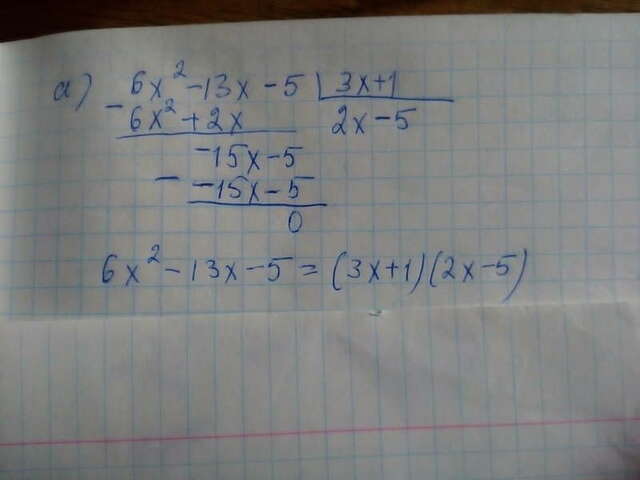 а) 6x² - 13x - 5 | 3x+1
- 6x² + 2x 2x - 5
-15x - 5
- -15x - 5
0
6x² - 13x - 5 = (3x+1)(2x-5)